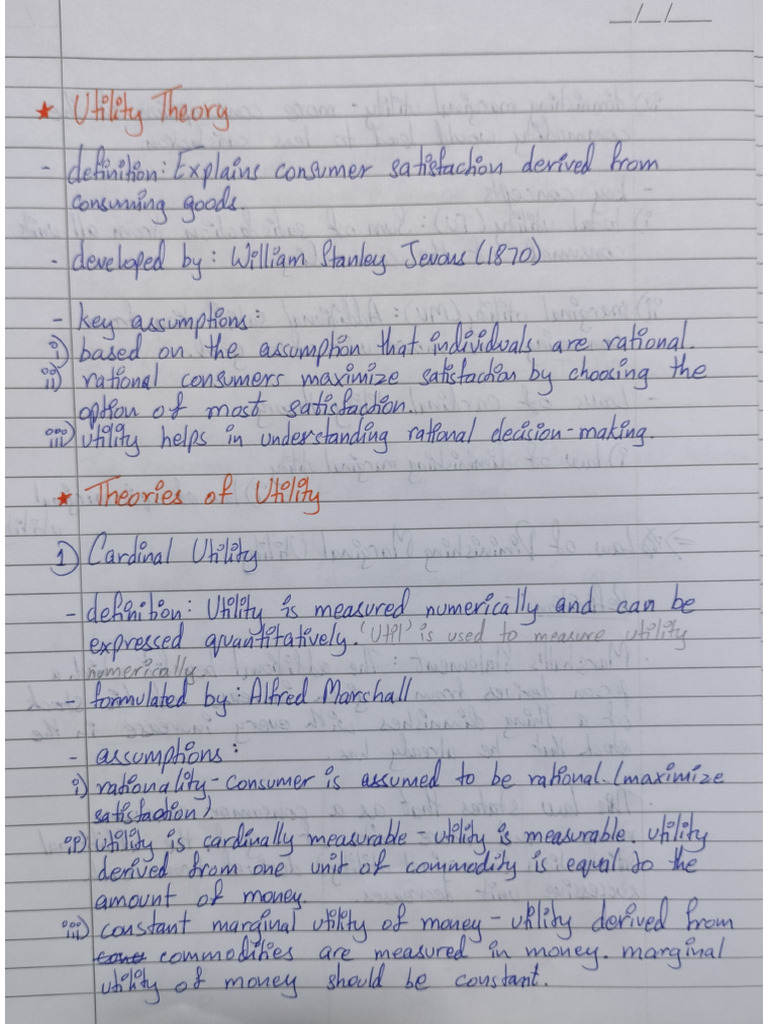 __/__/__
★ Utility Theory
- definition: Explains consumer satisfaction derived from
consuming goods.
- developed by: William Stanley Jevous (1870)
- key assumptions:
i) based on the assumption that individuals are rational.
ii) rational consumers maximize satisfaction by choosing the
option of most satisfaction.
iii) utility helps in understanding rational decision-making.
★ Theories of Utility
1) Cardinal Utility
- definition: Utility is measured numerically and can be
expressed quantitatively. ('Utpl' is used to measure utility
numerically
- formulated by: Alfred Marshall
- assumptions:
i) rationality - consumer is assumed to be rational. (maximize
satisfaction)
ii) utility is cardinally measurable - utility is measurable. utility
derived from one unit of commodity is equal to the
amount of money.
iii) constant marginal utility of money - utility derived from
commodities are measured in money. marginal
utility of money should be constant.